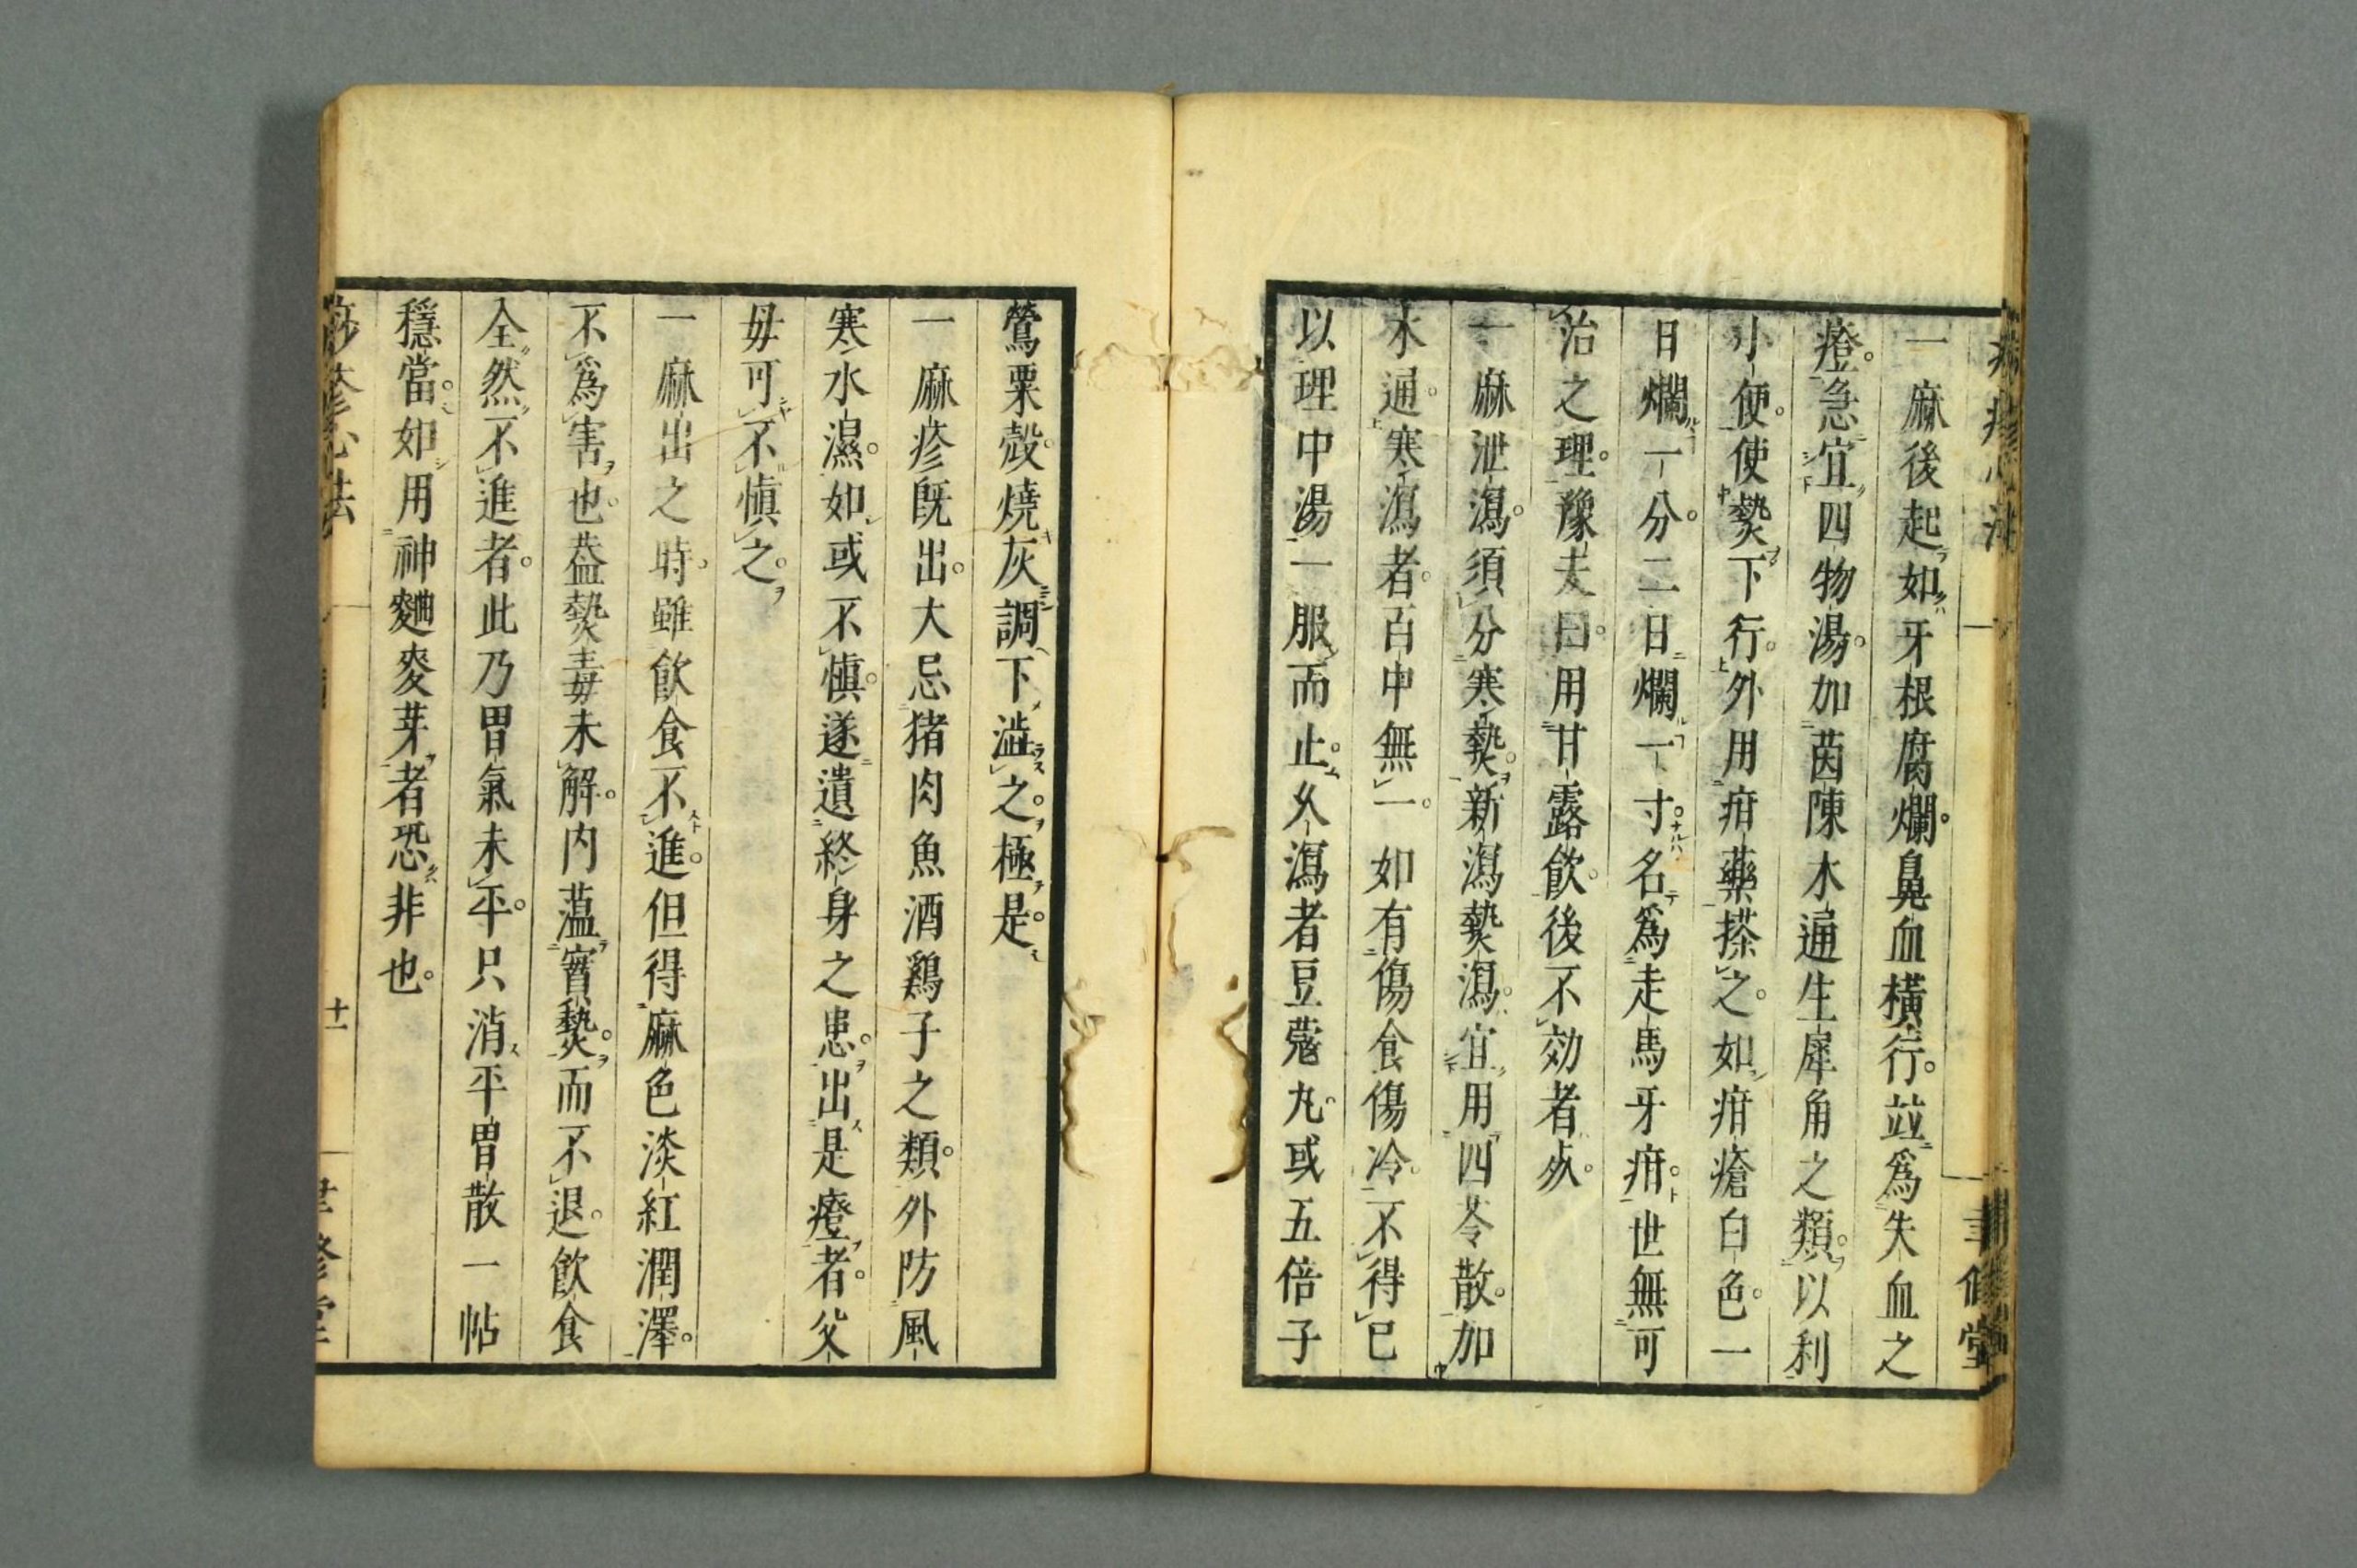 一麻後起如牙根腐爛。鼻血橫行。並爲失血之
癦。急宜四物湯。加茵陳木通生犀角之類。以利
小便。使𤍠下行。外用疳藥搽之。如疳瘡白色。一
日爛一分。二日爛一寸。名爲走馬牙疳。世無可
治之理。豫夫曰。用甘露飲。後不効者死。
一麻泄瀉。須分寒𤍠。新瀉𤍠瀉。宜用四苓散。加
木通。寒瀉者。百中無一。如有傷食傷冷。不得已
以理中湯一服而止。久瀉者豆蔻丸。或五倍子
鶯粟殼。燒灰調下澁之。極是。
一麻疹既出。大忌猪肉魚酒鷄子之類。外防風
寒水濕。如或不愼。遂遺終身之患。出是癦者。父
毋可不愼之。
一麻出之時。雖飲食不進。但得麻色淡紅潤澤。
不爲害也。葢𤍠毒未解。内蕰實𤍠。而不退。飲食
全然不進者。此乃胃氣未平。只消平胃散一帖
穩當。如用神麯麥芽者恐非也。
十一